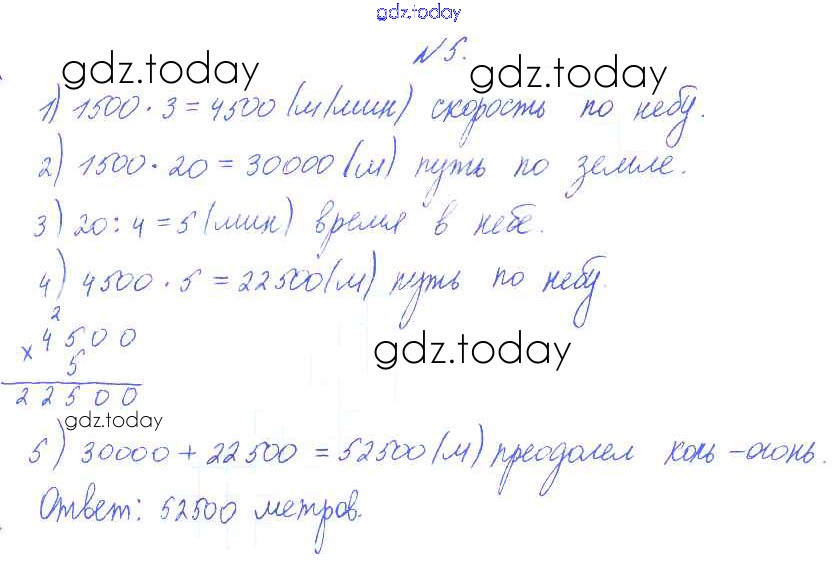 gdz.today
№ 5.
gdz.today gdz.today
1) 1500 · 3 = 4500 (м/мин) скорость по небу.
2) 1500 · 20 = 30000 (м) путь по земле.
3) 20 : 4 = 5 (мин) время в небе.
4) 4500 · 5 = 22500 (м) путь по небу.
2
× 4500
5
22500
gdz.today
gdz.today
5) 30000 + 22500 = 52500 (м) преодолел конь-огонь.
Ответ: 52500 метров.